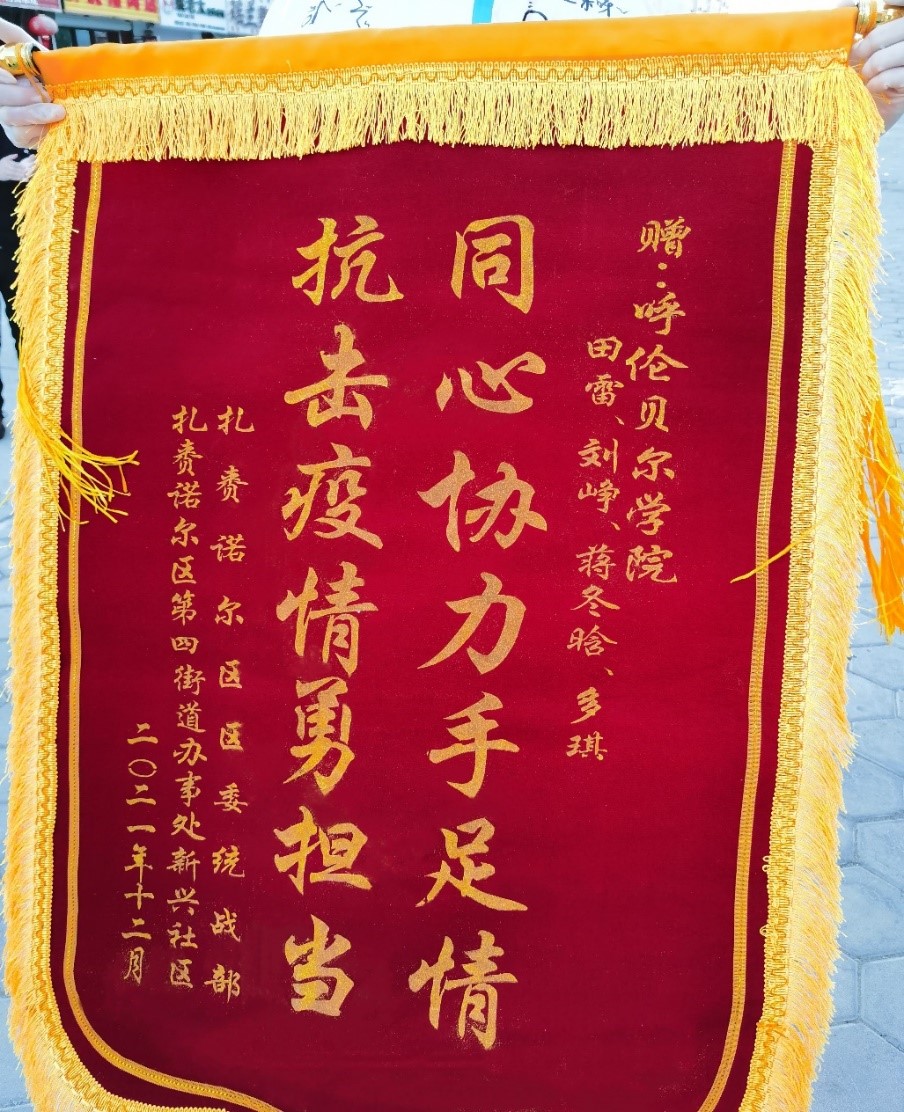 赠：呼伦贝尔学院
田雷、刘峥、蒋冬晗、多琪
同心协力手足情
抗击疫情勇担当
扎赉诺尔区区委统战部
扎赉诺尔区第四街道办事处新兴社区
二〇二一年十二月